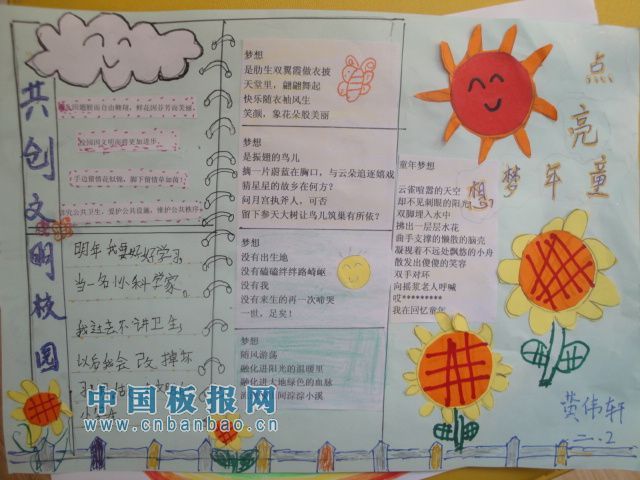 共创文明校园
校园因文明而将更加进步。
手边留情花似锦，脚下留情草如茵！
讲究公共卫生，爱护公共设施，维护公共秩序。
明年我要好好学习
当一名小科学家。
我过去不讲卫生
以后我会改掉坏
梦想
是肋生双翼霞做衣披
天堂里，翩翩舞起
快乐随衣袖风生
笑颜，象花朵般美丽
梦想
是振翅的鸟儿
摘一片蔚蓝在胸口，与云朵追逐嬉戏
猜星星的故乡在何方？
问月宫执斧人，可否
留下参天大树让鸟儿筑巢有所依？
梦想
没有出生地
没有磕磕绊绊路崎岖
没有我
没有来生的再一次啼哭
一世，足矣！
梦想
随风游荡
融化进阳光的温暖里
融化进大地绿色的血脉
间淙淙小溪
童年梦想
云雀喧嚣的天空
却不见刺眼的阳光
双脚埋入水中
拂出一层层水花
曲手支撑的懒散的脑壳
凝视着不远处飘悠的小舟
散发出傻傻的笑容
双手对环
向摇浆老人呼喊
哎*********
我在回忆童年
点亮童年梦想
黄伟轩
二.2
中国板报网
www.cnbanbao.cn